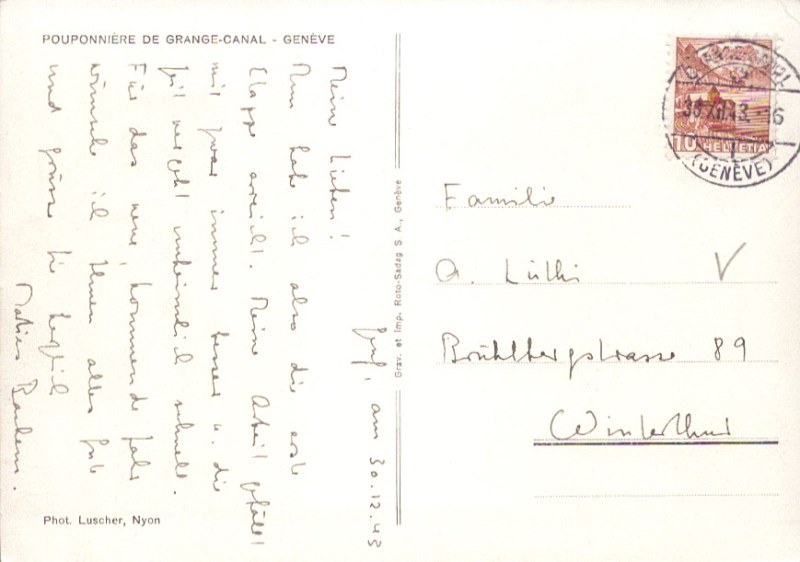 POUPONNIÈRE DE GRANGE-CANAL - GENÈVE
Genf, am 30.12.43
Meine Lieben!
Nun habe ich also die erste
Etappe erreicht. Meine Arbeit gefällt
mir zwar immer besser u. die
Zeit vergeht unheimlich schnell.
Für das neue, kommende Jahr
wünsche ich Ihnen alles Gute
und grüsse Sie herzlich
Phot. Luscher, Nyon
Grav. et Imp. Roto-Sadag S. A., Genève
30.XII.43.-6
(GENÈVE)
10 HELVETIA
Familie
A. Lüthi
V
Brühlbergstrasse 89
Winterthur